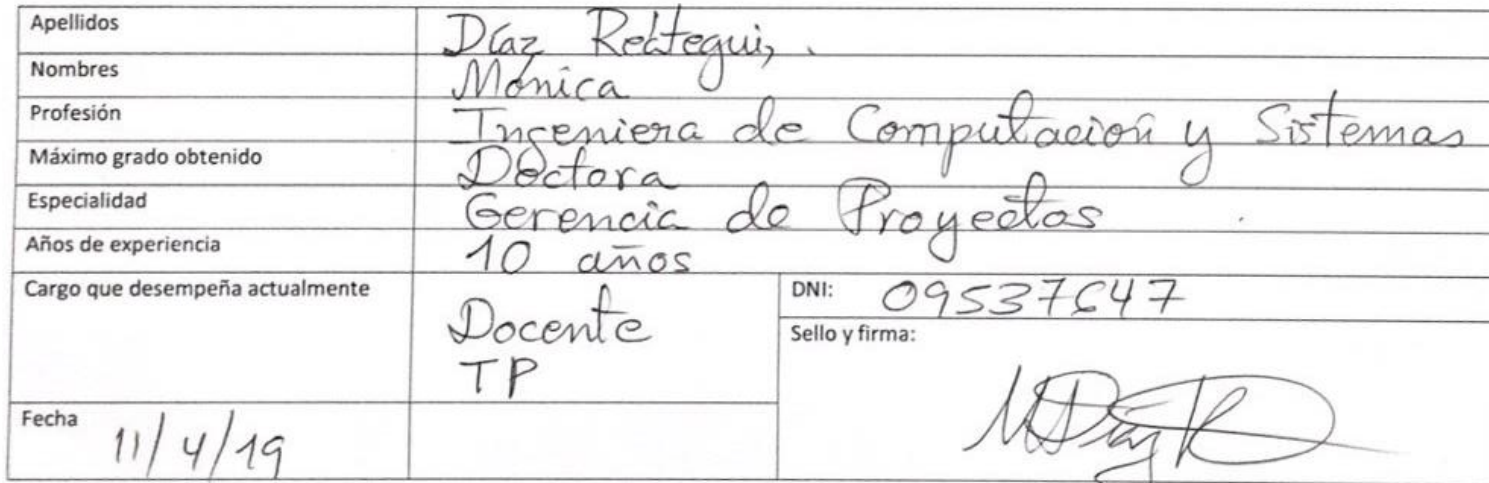 Apellidos Díaz Reátegui,
Nombres Mónica
Profesión Ingeniera de Computación y Sistemas
Máximo grado obtenido Doctora
Especialidad Gerencia de Proyectos
Años de experiencia 10 años
Cargo que desempeña actualmente Docente
TP
DNI: 09537647
Sello y firma:
Fecha 11/4/19